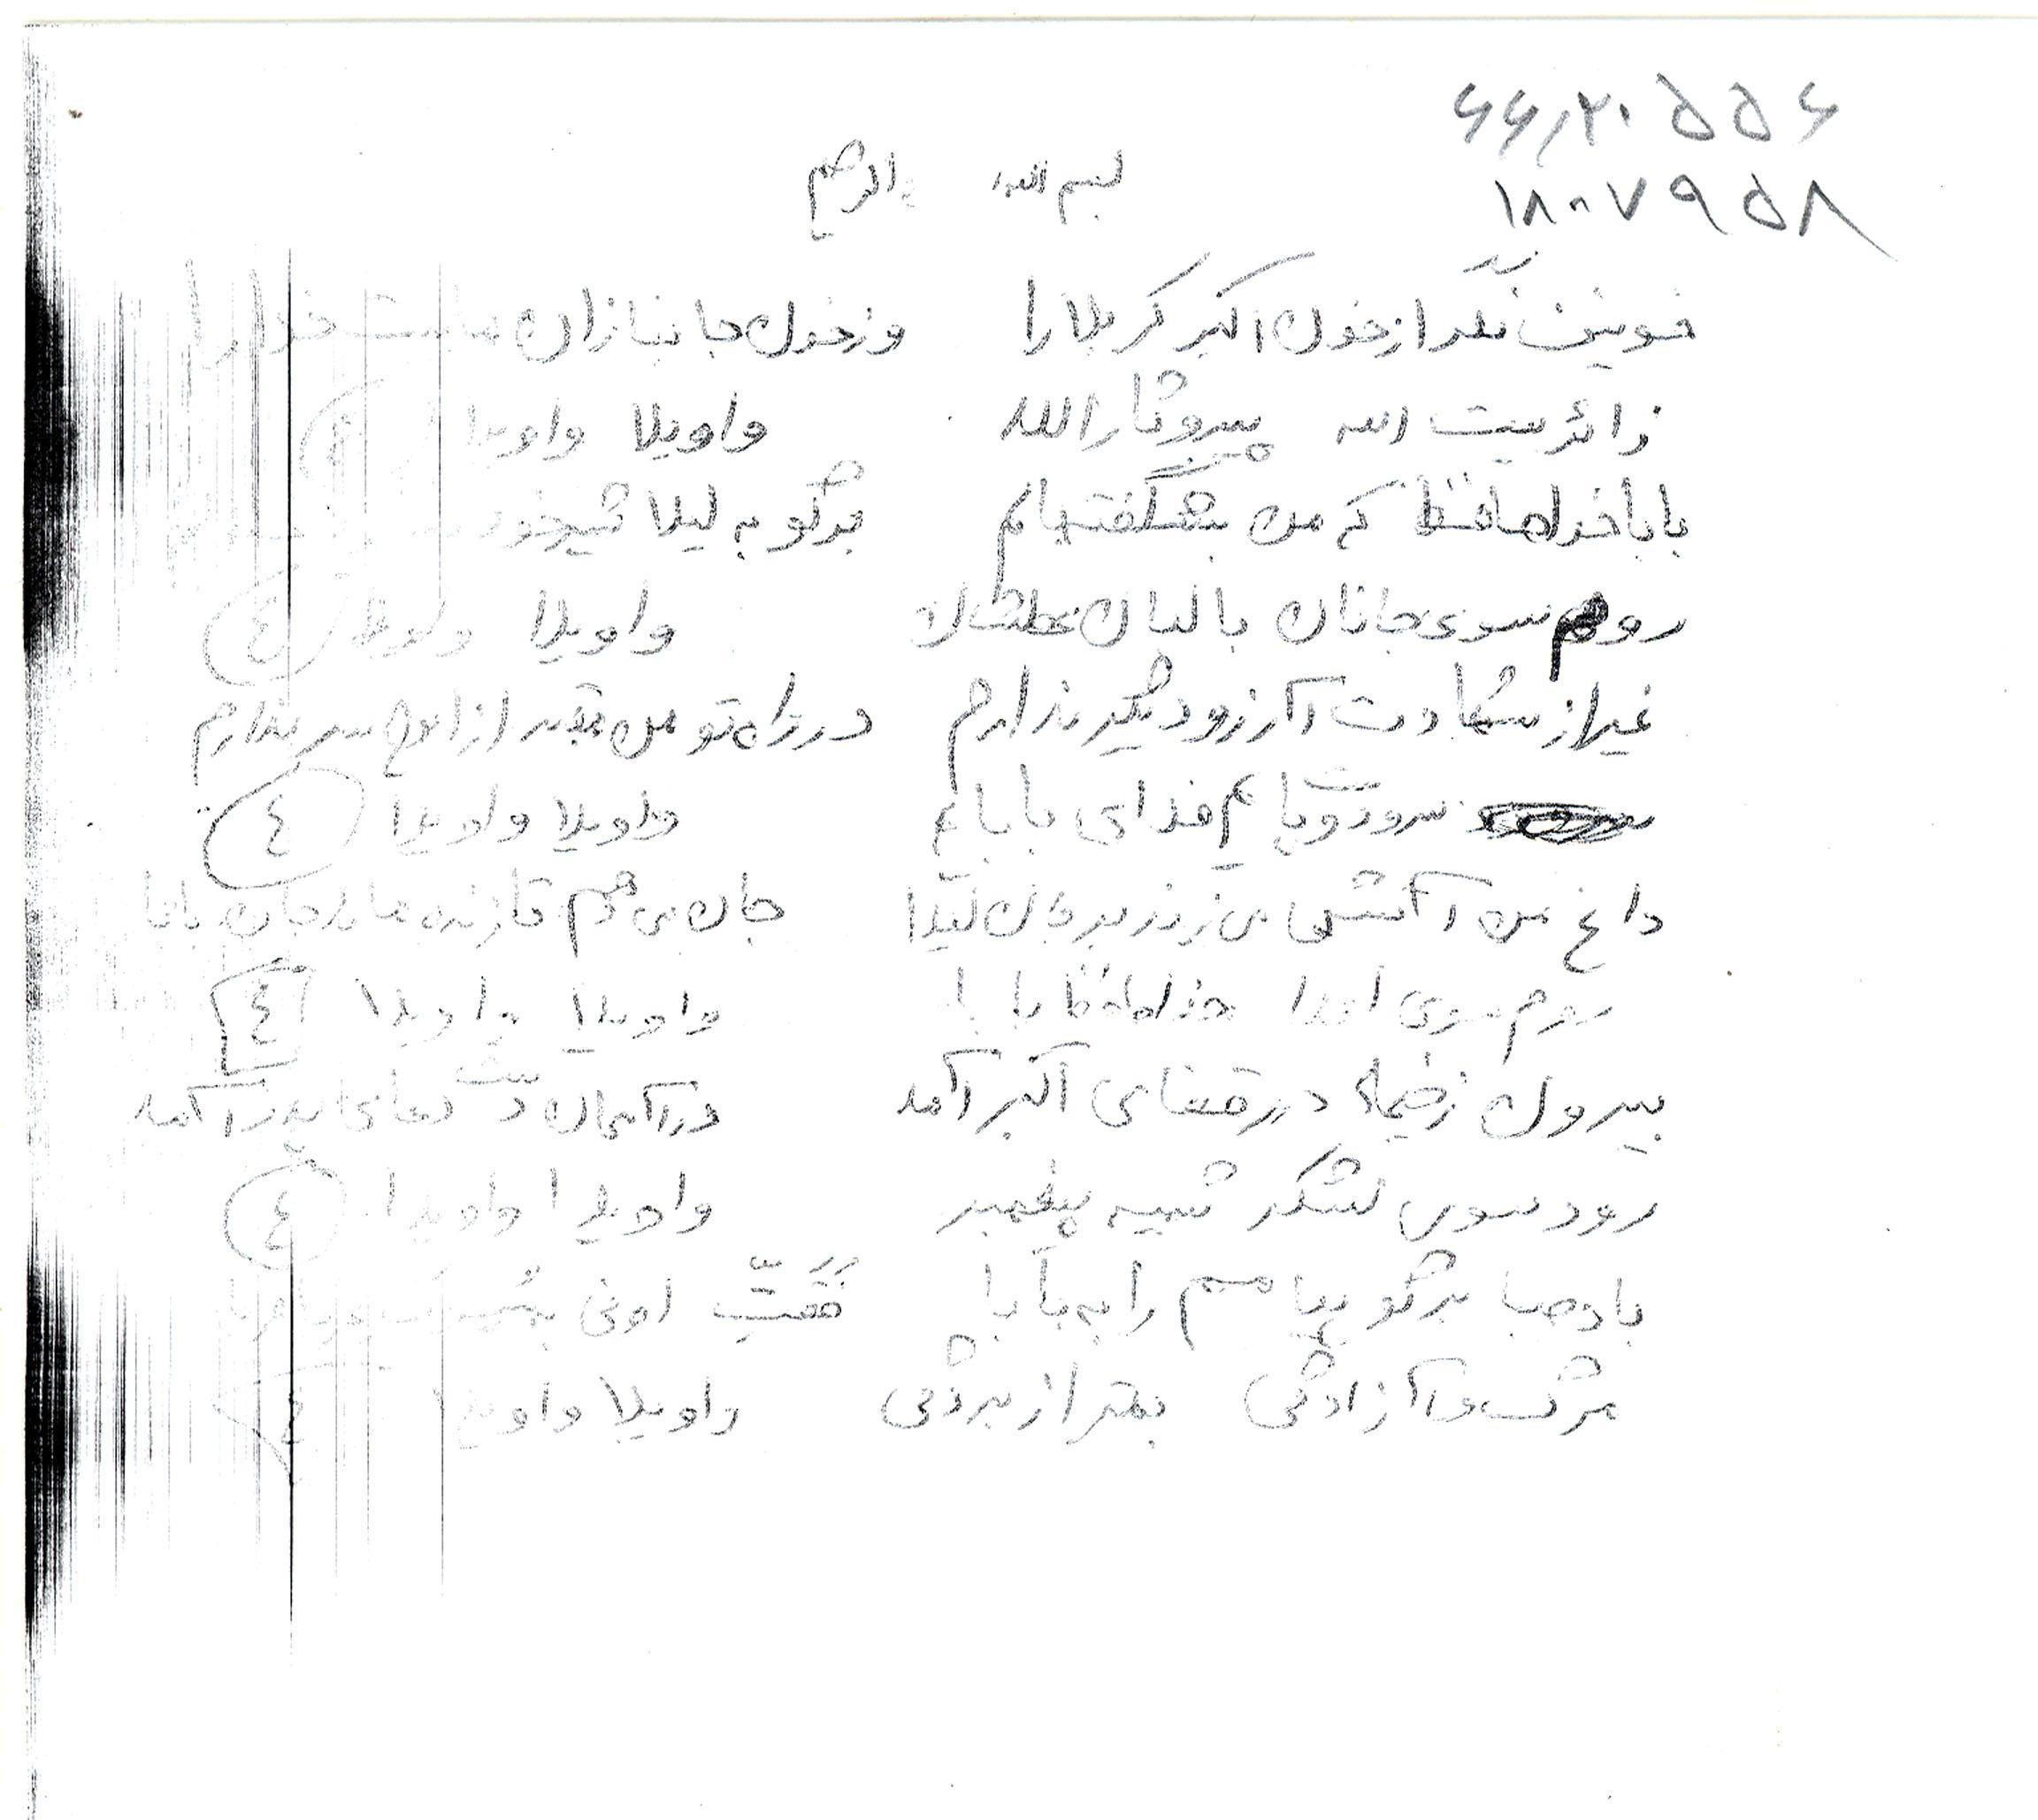 ۶۶٫۲۰۵۵۶
۱۸۰۷۹۵۸
بسم الله الرحیم
خونین نگر از خون اکبر کربلا را وز خون جانبازان خدا را
زائر بیت الله پیرو ثارالله واویلا واویلا
بابا خداحافظ که من بشکفته‌ام برگو به لیلا
روم سوی جانان با لبان عطشان واویلا واویلا ٤
غیر از شهادت آرزو دیگر ندارم در راه تو من از سر ندارم
سر و دست و پایم فدای بابایم واویلا واویلا ٤
داغ من آتش می زند بر جان لیلا جان می دهم تا زنده ماند جان بابا
روم سوی اعدا خداحافظ بابا واویلا واویلا ٤
بیرون ز خیمه در قفای اکبر آمد در آسمان دست دعای پدر آمد
رود سوی لشکر شبیه پیغمبر واویلا واویلا ٤
باد صبا برگو پیامم را به بابا
مرگ و آزادگی بهتر از بردگی واویلا واویلا ٤